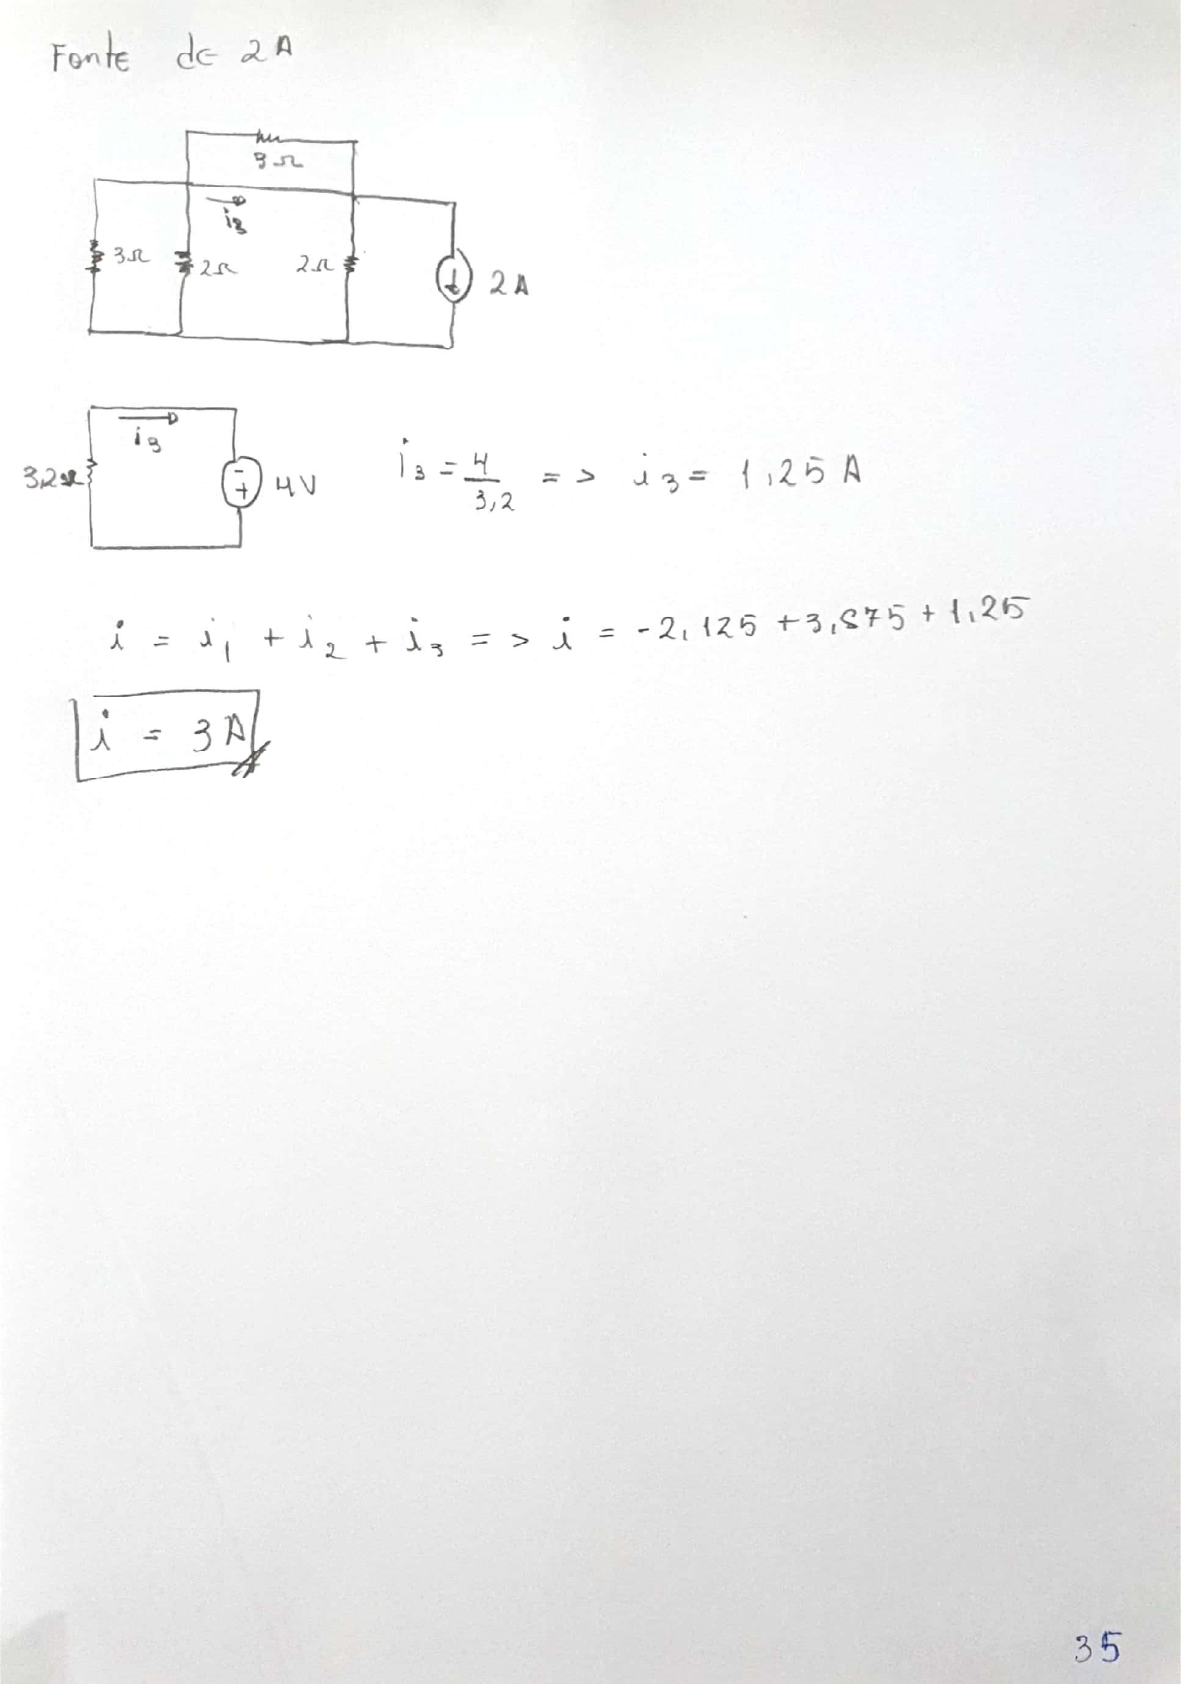 Fonte de 2 A
9 Ω
i3
3Ω 2Ω 2Ω 2 A
i3
3,2Ω - + 4V i3 = 4/3,2 => i3 = 1,25 A
i = i1 + i2 + i3 => i = -2,125 + 3,875 + 1,25
i = 3 A
35